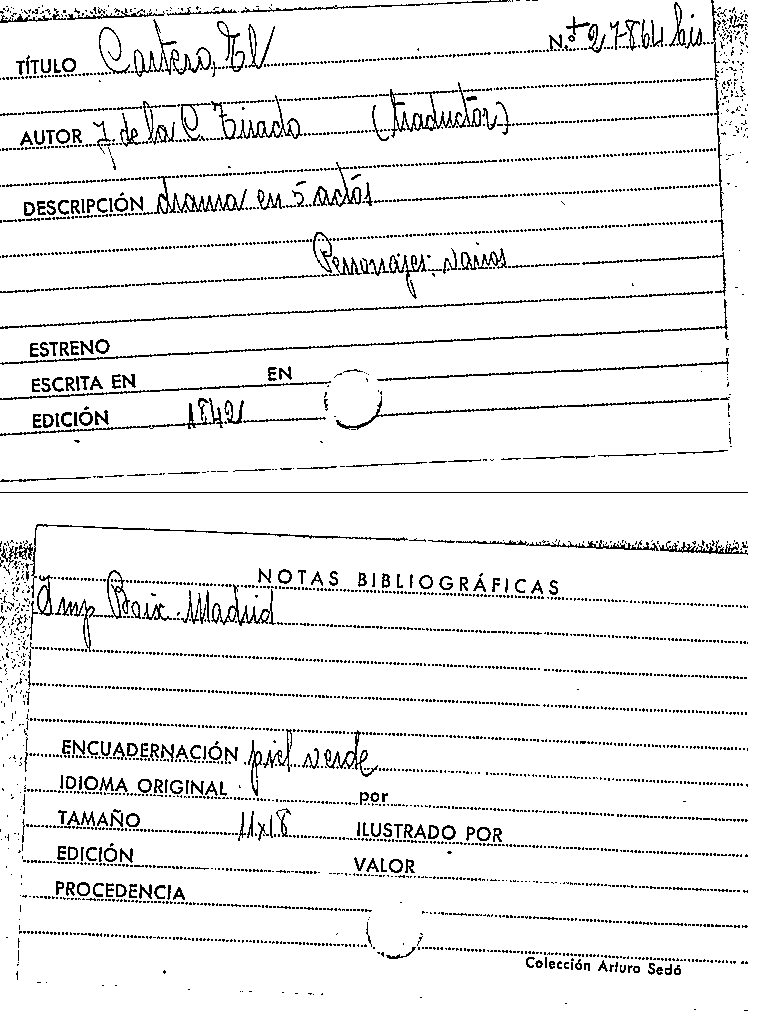 TÍTULO Cartero, El N.º 27864 bis
AUTOR J. de la C. Tirado (traductor)
DESCRIPCIÓN drama en 5 actos
Personajes: varios
ESTRENO
ESCRITA EN EN
EDICIÓN 1842
NOTAS BIBLIOGRÁFICAS
Imp Boix. Madrid
ENCUADERNACIÓN piel verde
IDIOMA ORIGINAL por
TAMAÑO 11x18 ILUSTRADO POR
EDICIÓN VALOR
PROCEDENCIA
Colección Arturo Sedó